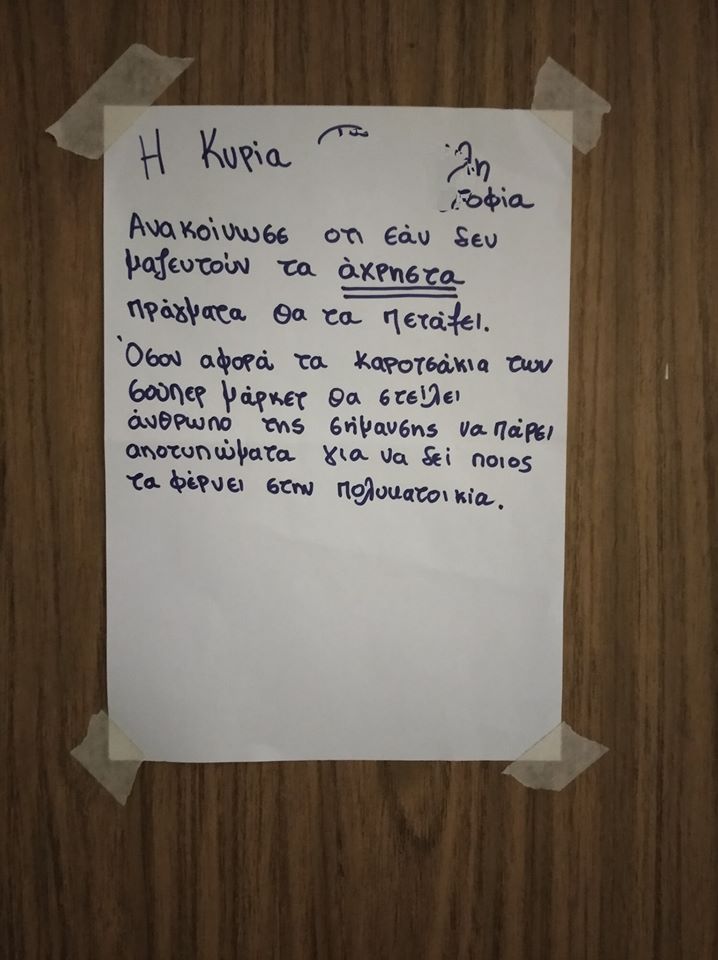 Η Κυρία
Ανακοίνωσε οτι εάν δεν
μαζευτούν τα άχρηστα
πράγματα θα τα πετάξει.
Όσον αφορά τα καροτσάκια των
σούπερ μάρκετ θα στείλει
άνθρωπο της σήμανσης να πάρει
αποτυπώματα για να δεί ποιος
τα φέρνει στην πολυκατοικία.